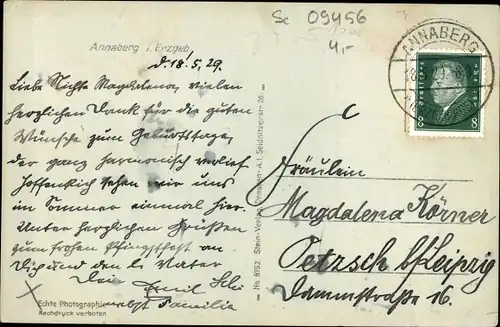 Sc 09456
4,-
Annaberg i. Erzgeb.
d. 18.5.29.
Liebe Nichte Magdalena, vielen
herzlichen Dank für die guten
Wünsche zum Geburtstage,
der ganz harmonisch verlief
Hoffentlich sehen wir uns
im Sommer einmal hier.
Unter herzlichen Grüßen
zum frohen Pfingstfest an
Dich und den l. Vater
Dein Emil
nebst Familie
Echte Photographie
Nachdruck verboten
No. 8152 Stein-Verlag, Dresden-A.1, Seidnitzerstr. 26
ANNABERG
8 8
Fräulein
Magdalena Körner
Oetzsch b/Leipzig
Dammstraße 16.